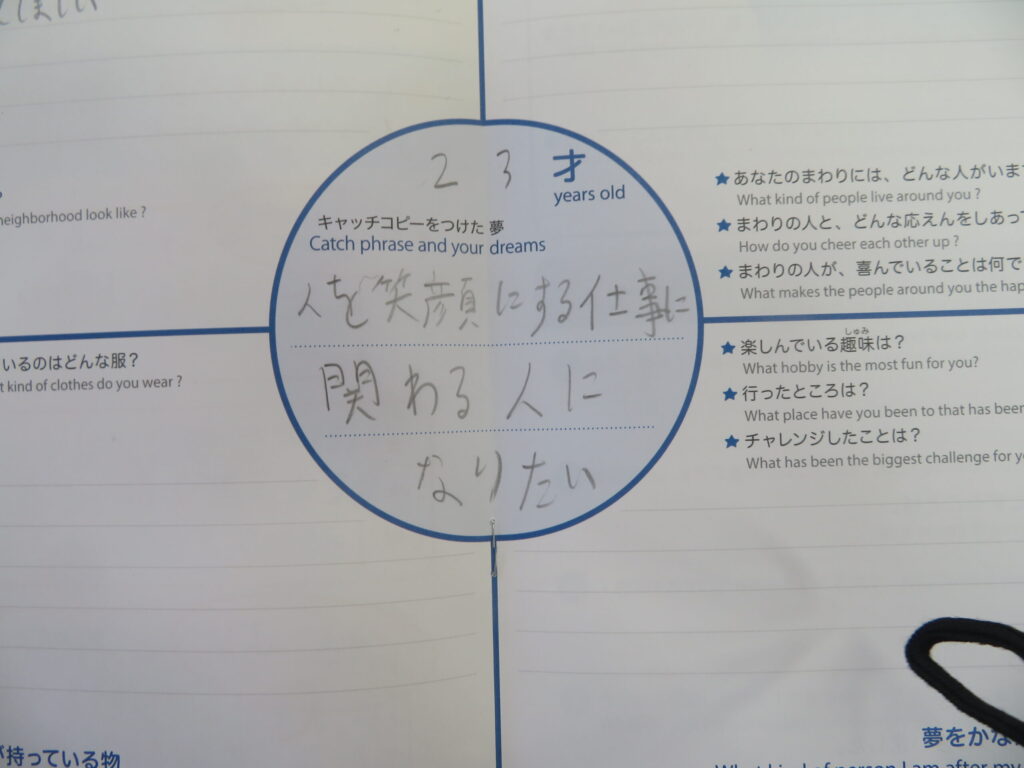 てほしい
2 3 才
years old
キャッチコピーをつけた 夢
Catch phrase and your dreams
人を笑顔にする仕事に
関わる人に
なりたい
neighborhood look like ?
いるのはどんな服?
kind of clothes do you wear ?
が持っている物
★あなたのまわりには、どんな人がいま
What kind of people live around you ?
★まわりの人と、どんな応えんをしあっ
How do you cheer each other up ?
★まわりの人が、喜んでいることは何で
What makes the people around you the hap
しゅみ
★楽しんでいる趣味は?
What hobby is the most fun for you?
★行ったところは?
What place have you been to that has been
★チャレンジしたことは?
What has been the biggest challenge for yo
夢をかな
What kind of person I am after my